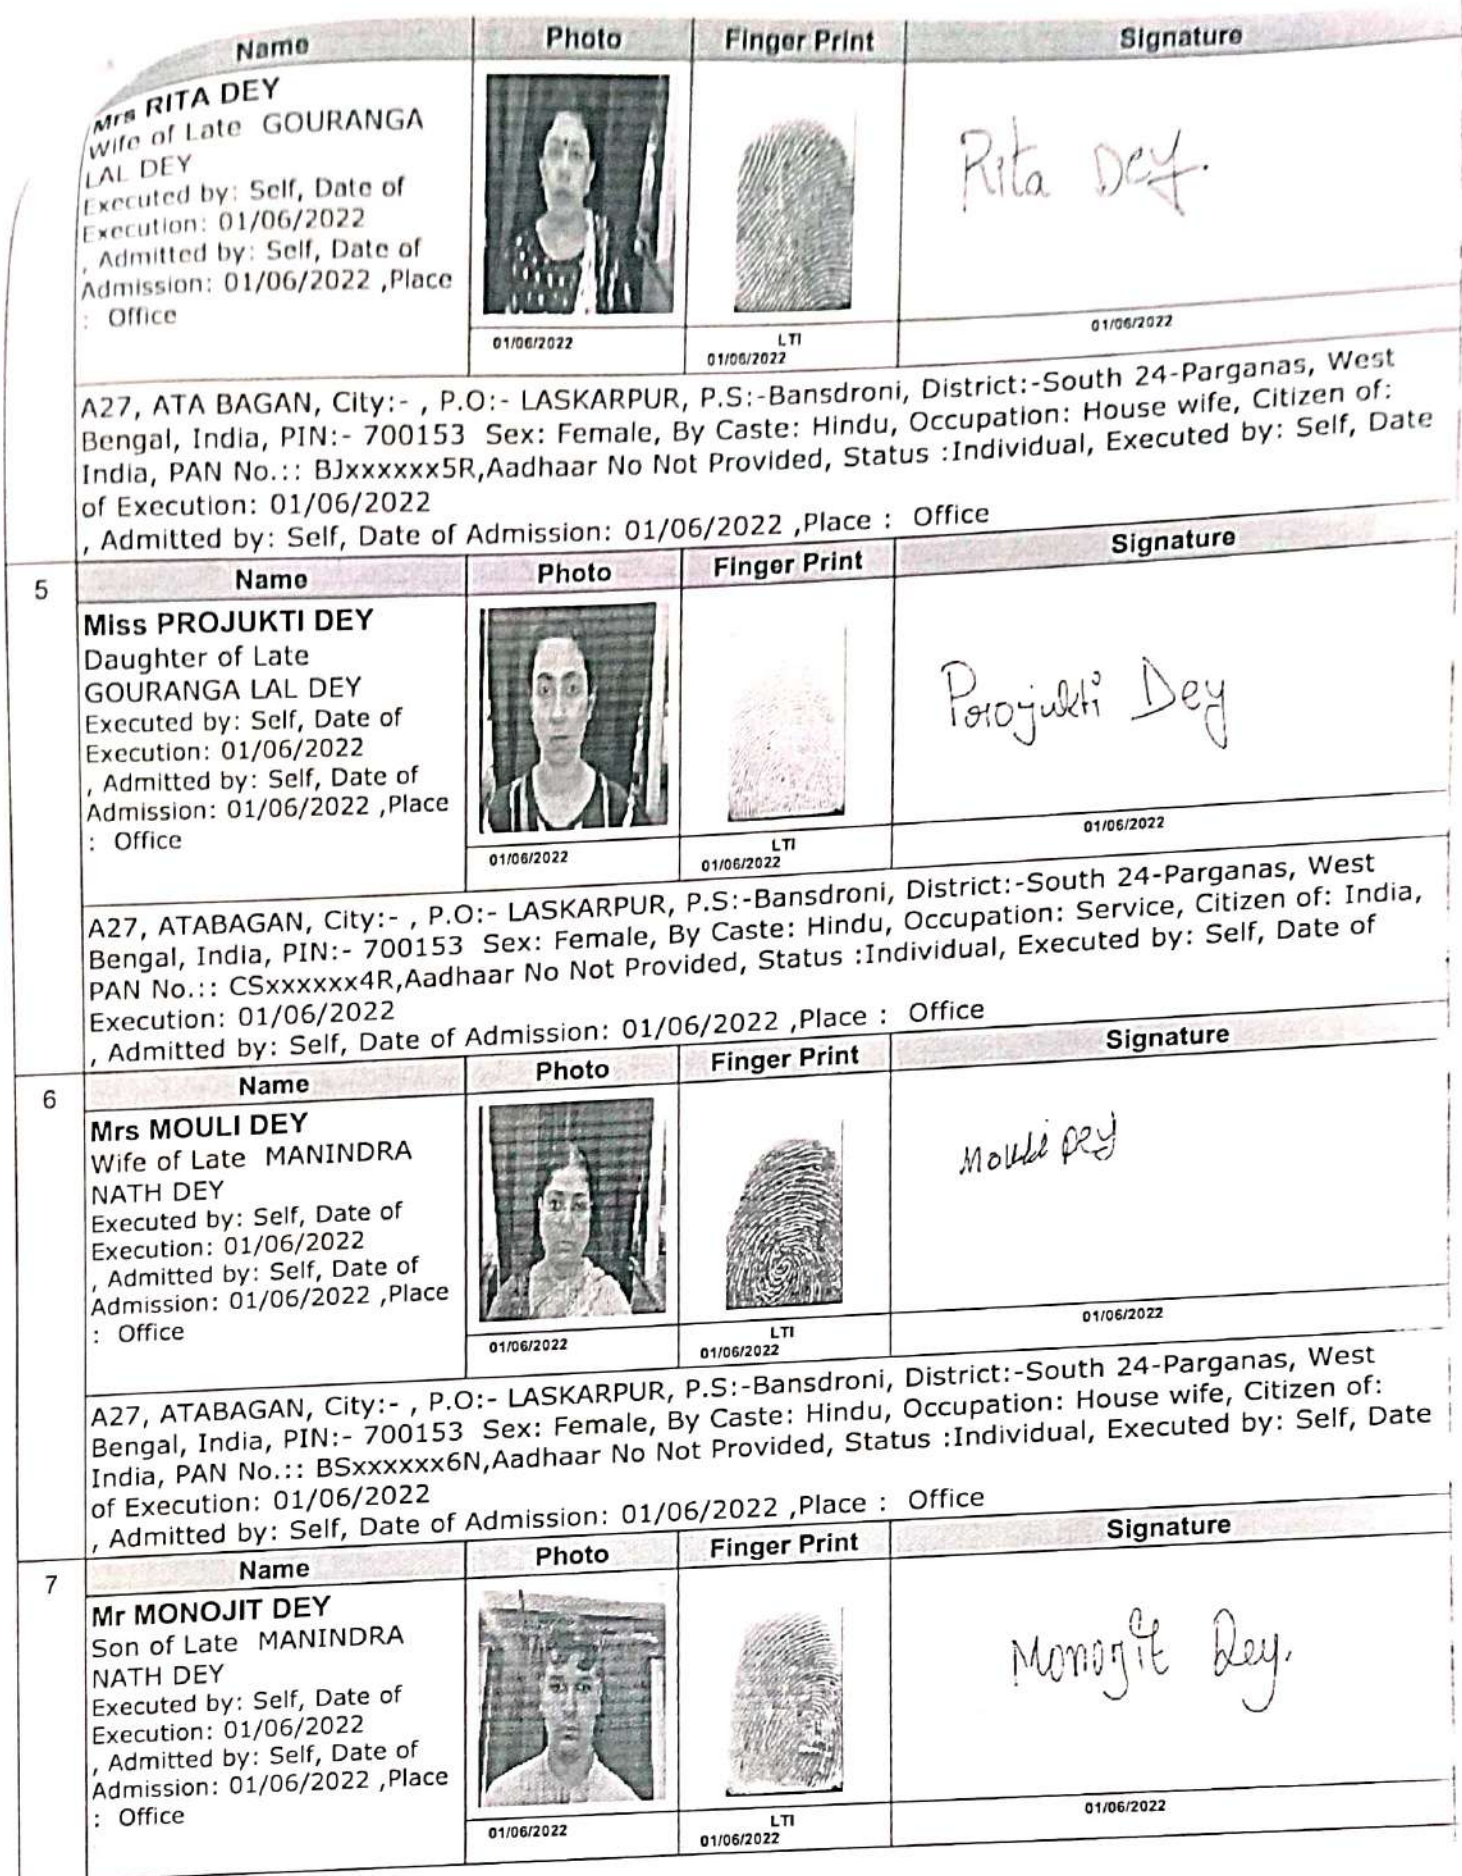 Name Photo Finger Print Signature
Mrs RITA DEY
Wife of Late GOURANGA
LAL DEY
Executed by: Self, Date of
Execution: 01/06/2022
, Admitted by: Self, Date of
Admission: 01/06/2022 ,Place
: Office
Rita Dey.
01/06/2022
LTI
01/06/2022
01/06/2022
A27, ATA BAGAN, City:- , P.O:- LASKARPUR, P.S:-Bansdroni, District:-South 24-Parganas, West
Bengal, India, PIN:- 700153 Sex: Female, By Caste: Hindu, Occupation: House wife, Citizen of:
India, PAN No.:: BJxxxxxx5R,Aadhaar No Not Provided, Status :Individual, Executed by: Self, Date
of Execution: 01/06/2022
, Admitted by: Self, Date of Admission: 01/06/2022 ,Place : Office
5 Name Photo Finger Print Signature
Miss PROJUKTI DEY
Daughter of Late
GOURANGA LAL DEY
Executed by: Self, Date of
Execution: 01/06/2022
, Admitted by: Self, Date of
Admission: 01/06/2022 ,Place
: Office
Projukti Dey
01/06/2022
LTI
01/06/2022
01/06/2022
A27, ATABAGAN, City:- , P.O:- LASKARPUR, P.S:-Bansdroni, District:-South 24-Parganas, West
Bengal, India, PIN:- 700153 Sex: Female, By Caste: Hindu, Occupation: Service, Citizen of: India,
PAN No.:: CSxxxxxx4R,Aadhaar No Not Provided, Status :Individual, Executed by: Self, Date of
Execution: 01/06/2022
, Admitted by: Self, Date of Admission: 01/06/2022 ,Place : Office
6 Name Photo Finger Print Signature
Mrs MOULI DEY
Wife of Late MANINDRA
NATH DEY
Executed by: Self, Date of
Execution: 01/06/2022
, Admitted by: Self, Date of
Admission: 01/06/2022 ,Place
: Office
Mouli Dey
01/06/2022
LTI
01/06/2022
01/06/2022
A27, ATABAGAN, City:- , P.O:- LASKARPUR, P.S:-Bansdroni, District:-South 24-Parganas, West
Bengal, India, PIN:- 700153 Sex: Female, By Caste: Hindu, Occupation: House wife, Citizen of:
India, PAN No.:: BSxxxxxx6N,Aadhaar No Not Provided, Status :Individual, Executed by: Self, Date
of Execution: 01/06/2022
, Admitted by: Self, Date of Admission: 01/06/2022 ,Place : Office
7 Name Photo Finger Print Signature
Mr MONOJIT DEY
Son of Late MANINDRA
NATH DEY
Executed by: Self, Date of
Execution: 01/06/2022
, Admitted by: Self, Date of
Admission: 01/06/2022 ,Place
: Office
Monojit Dey.
01/06/2022
LTI
01/06/2022
01/06/2022